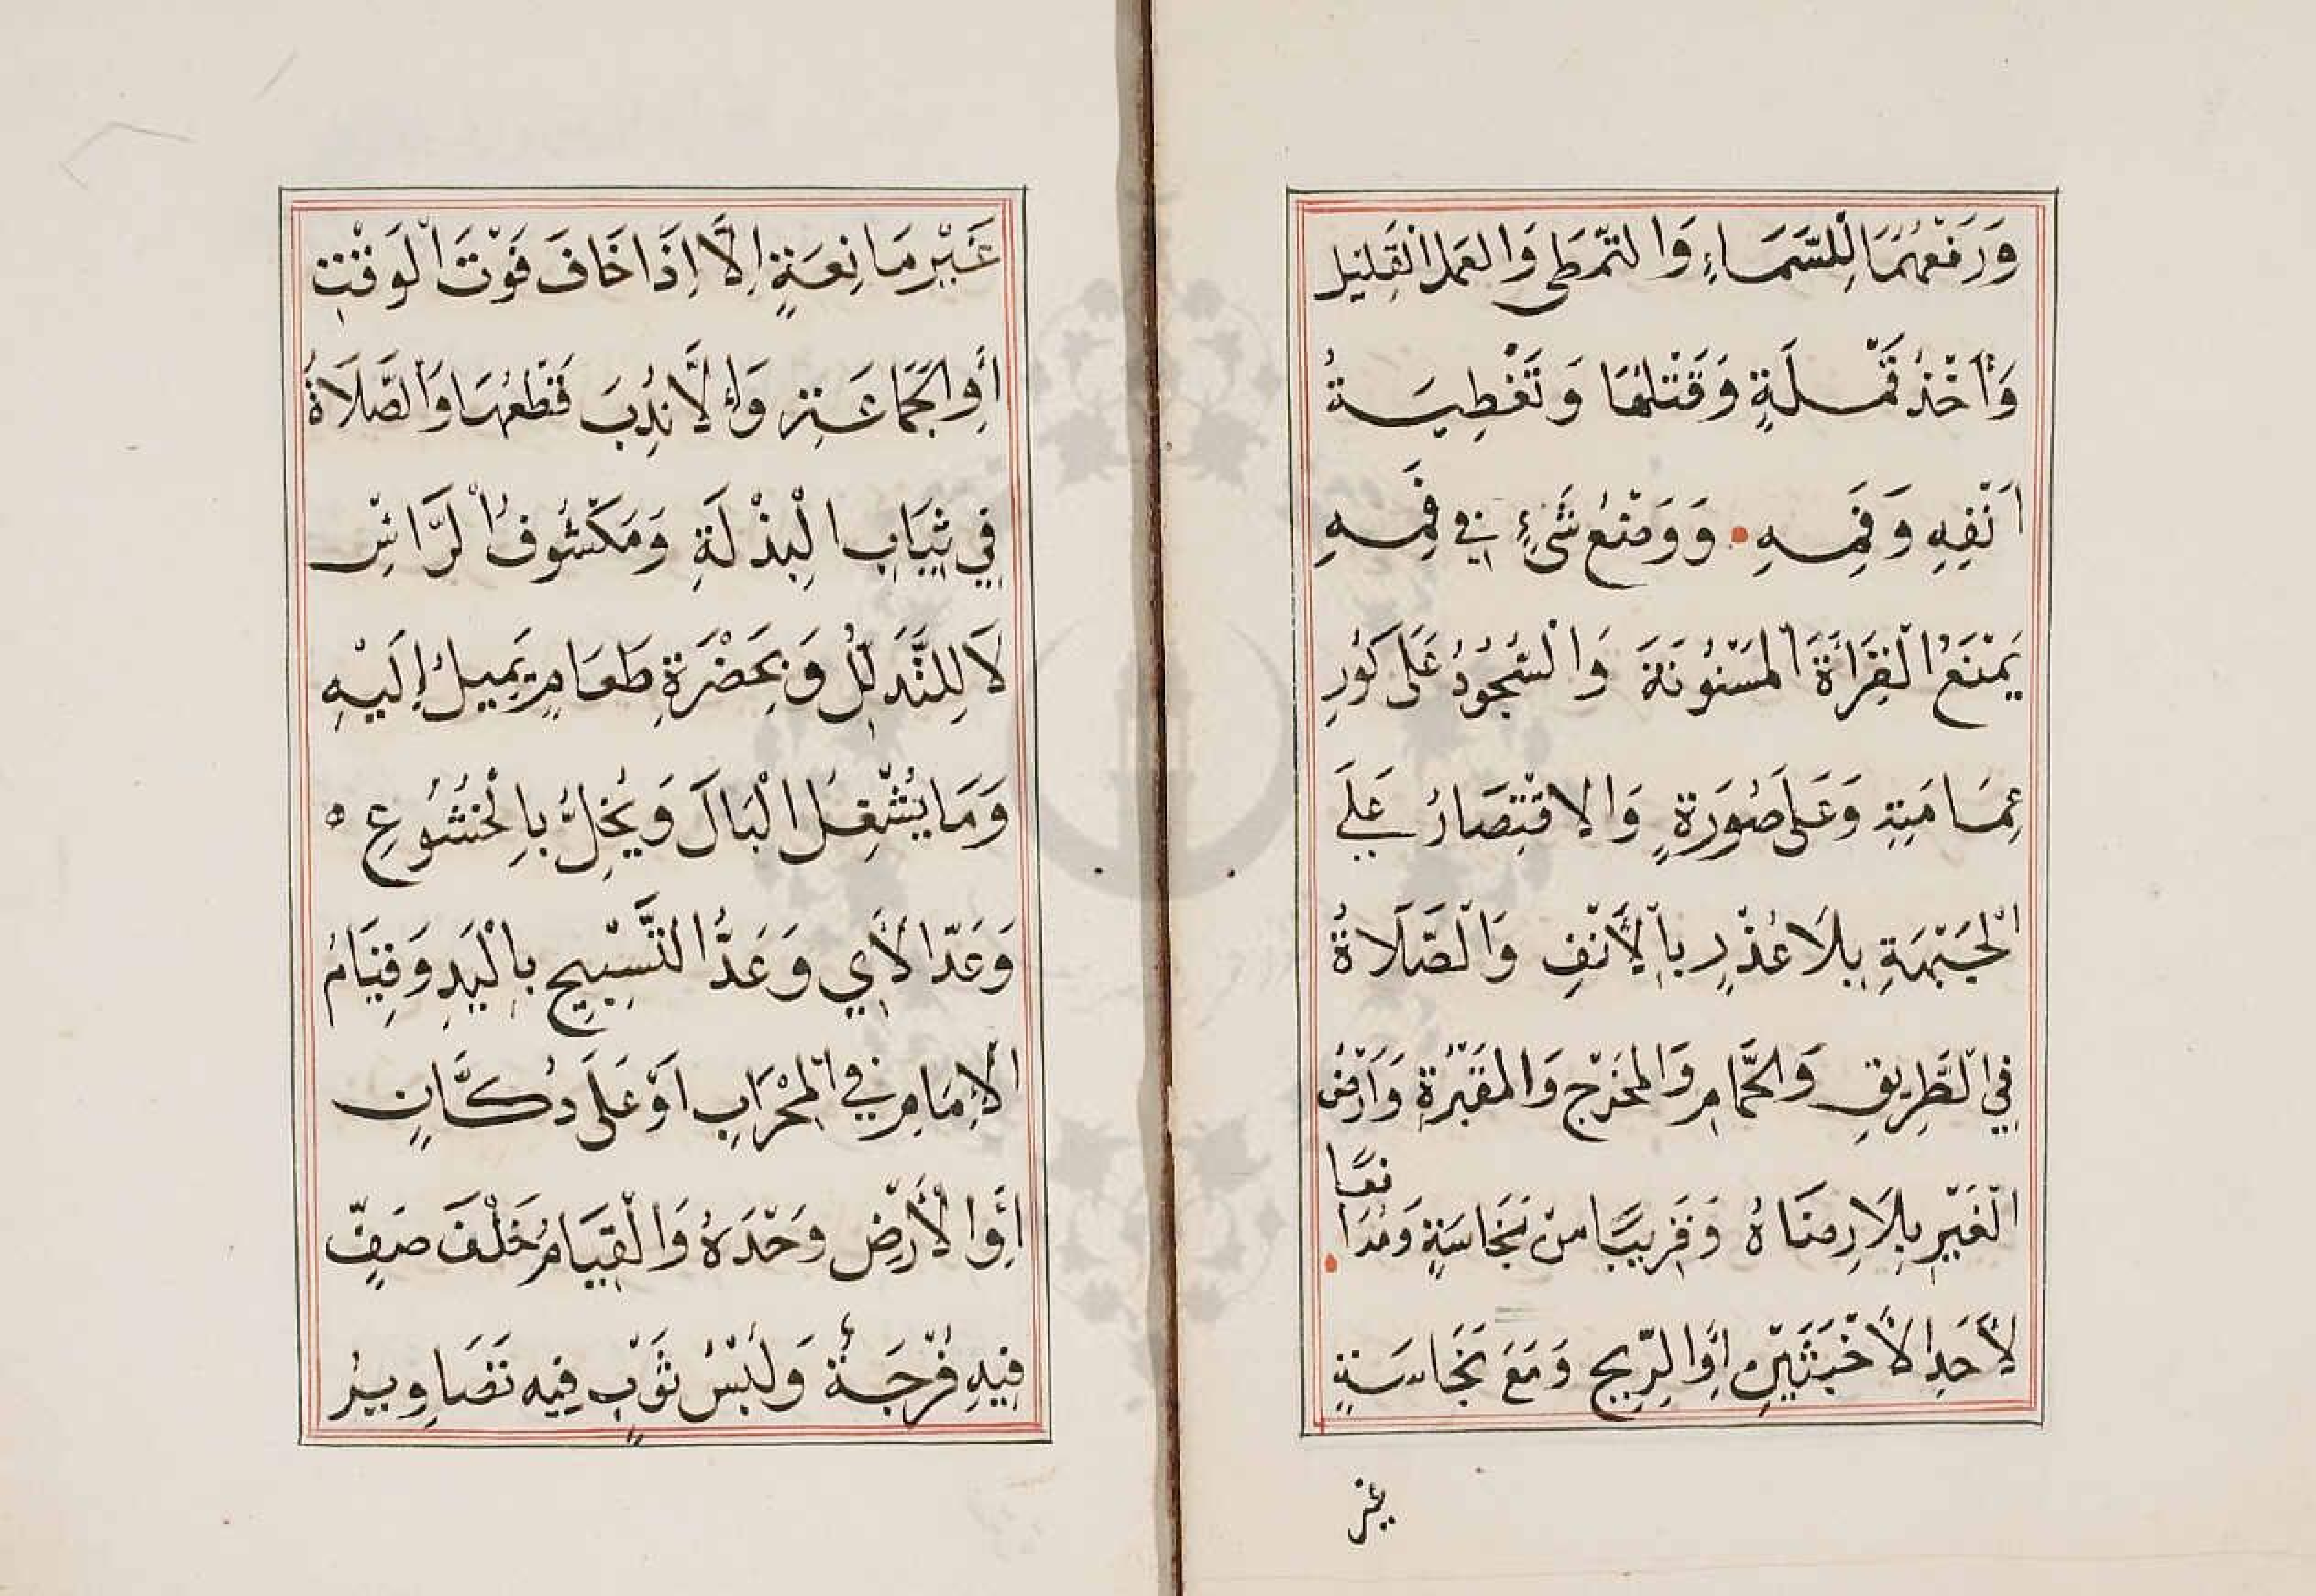 وَرَفْعُهُمَا لِلسَّمَاءِ وَالتَّمَطِّي وَالعَمَلُ الْقَلِيْلُ
وَأَخْذُ قَمْلَةٍ وَقَتْلُهَا وَتَغْطِيَةُ
اَنْفِهِ وَفَمِهِ • وَوَضْعُ شَيْءٍ فِي فَمِهِ
يَمْنَعُ الْقِرَأَةَ الْمَسْنُوْنَةَ وَالْسُّجُوْدُ عَلَى كَوْرِ
عِمَامَتِهِ وَعَلَى صُوْرَةٍ وَالاقْتِصَارُ عَلَى
الْجَبْهَةِ بِلَا عُذْرٍ بِاْلأَنْفِ وَالْصَّلَاةُ
فِي الْطَّرِيْقِ وَالْحَمَّامِ وَالْمَخْرَجِ وَالْمَقْبَرَةِ وَأَرْضِ
الْغَيْرِ بِلَا رِضَاهُ وَقَرِيبًا مِنْ نَجَاسَةٍ وَمُدَا
فعًا
لِأَحَدِ الأَخْبَثَيْنِ أَوِ الرِّيْحِ وَمَعَ نَجَاسَةٍ
غير
غَيْرِ مَانِعَةٍ إِلَّا إِذَا خَافَ فَوْتَ الْوَقْتِ
أَوِ الْجَمَاعَةِ وَإِلَّا نُدِبَ قَطْعُهَا وَالصَّلَاةُ
فِي ثِيَابِ الْبِذْلَةِ وَمَكْشُوفُ الْرَّاْسِ
لَا لِلتَّذَلُّلِ وَبِحَضْرَةِ طَعَامٍ يَمِيلُ إِلَيْهِ
وَمَا يُشْغِلُ الْبَالَ وَيُخِلُّ بِالْخُشُوْعِ ه
وَعَدّ الْأَيِ وَعَدُّ التَّسْبِيْحِ بِالْيَدِ وَقِيَامُ
الْاِمَامِ فِي الْمِحْرَابِ اَوْ عَلَى دُكَّانٍ
أَوِ الْأَرْضِ وَحْدَهُ وَالْقِيَامُ خَلْفَ صَفٍّ
فِيهِ فُرْجَةٌ وَلُبْسُ ثَوْبٍ فِيهِ تَصَاوِيرُ